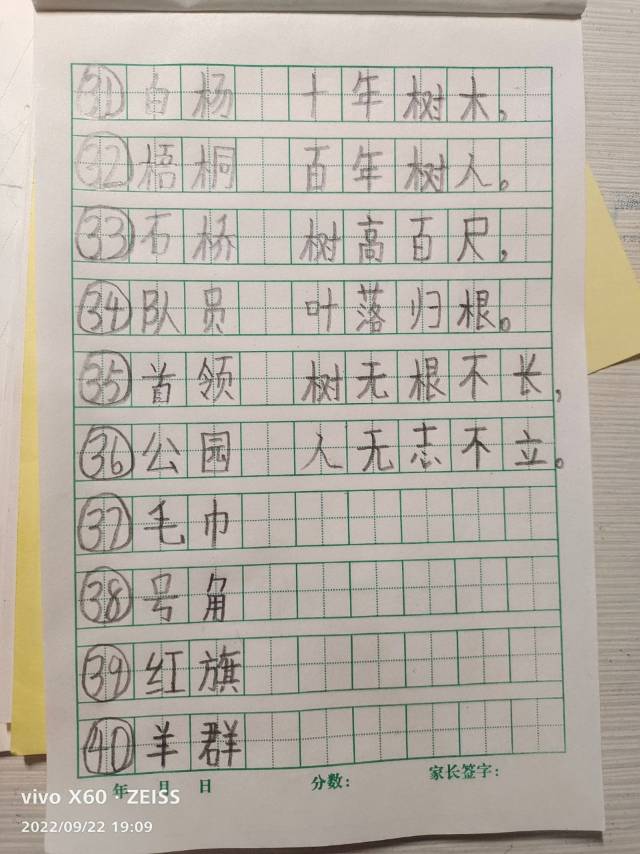 31 白杨 十年树木。
32 梧桐 百年树人。
33 石桥 树高百尺,
34 队员 叶落归根。
35 首领 树无根不长,
36 公园 人无志不立。
37 毛巾
38 号角
39 红旗
40 羊群
年 月 日 分数： 家长签字：
vivo X60 · ZEISS
2022/09/22 19:09